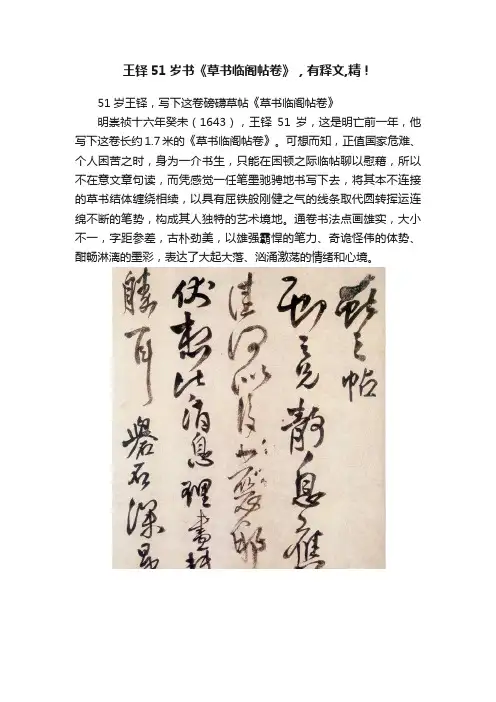 王铎51岁书《草书临阁帖卷》，有释文,精！
51岁王铎，写下这卷磅礴草帖《草书临阁帖卷》
明崇祯十六年癸未（1643），王铎51岁，这是明亡前一年，他
写下这卷长约1.7米的《草书临阁帖卷》。可想而知，正值国家危难、
个人困苦之时，身为一介书生，只能在困顿之际临帖聊以慰藉，所以
不在意文章句读，而凭感觉一任笔墨驰骋地书写下去，将其本不连接
的草书结体缠绕相续，以具有屈铁般刚健之气的线条取代圆转挥运连
绵不断的笔势，构成其人独特的艺术境地。通卷书法点画雄实，大小
不一，字距参差，古朴劲美，以雄强霸悍的笔力、奇诡怪伟的体势、
酣畅淋漓的墨彩，表达了大起大落、汹涌激荡的情绪和心境。
獻之帖
之兄靜息應
佳何以復小惡耶
伏想比消息理盡轉
勝耳礜石深是